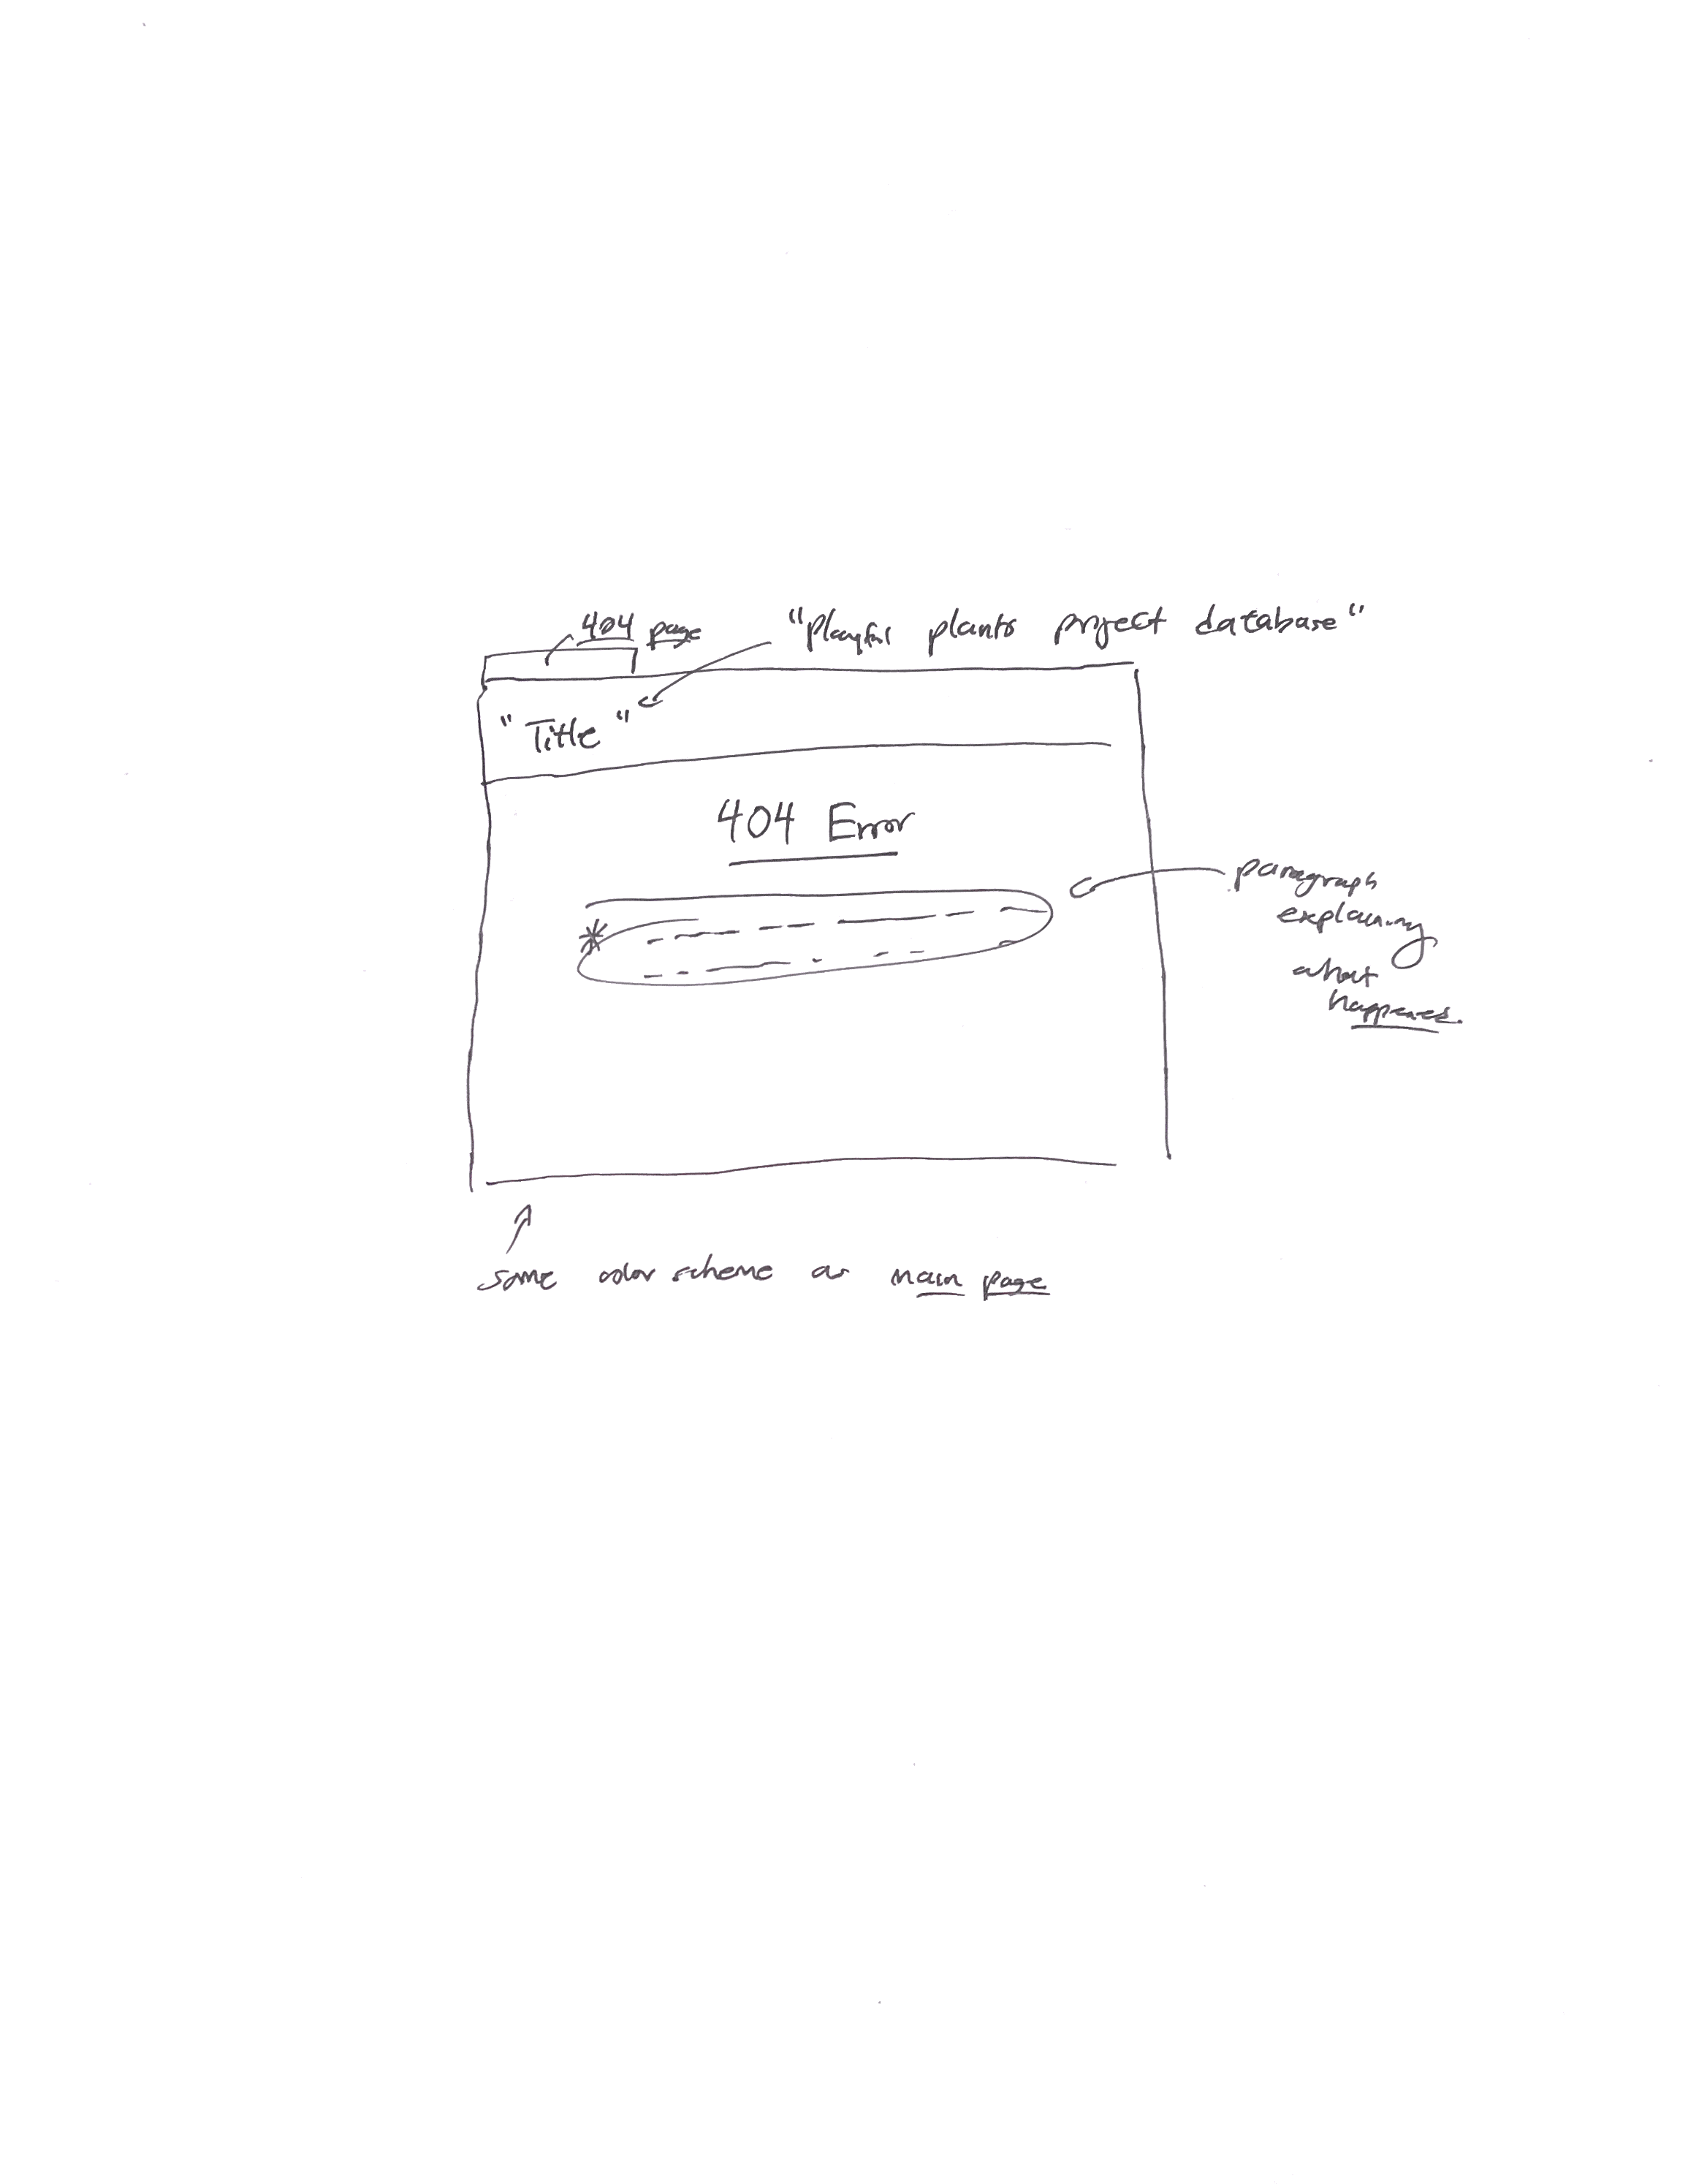 404 page
"Playful plants project database"
"Title"
404 Error
paragraph
explaining
what
happened.
same color scheme as main page